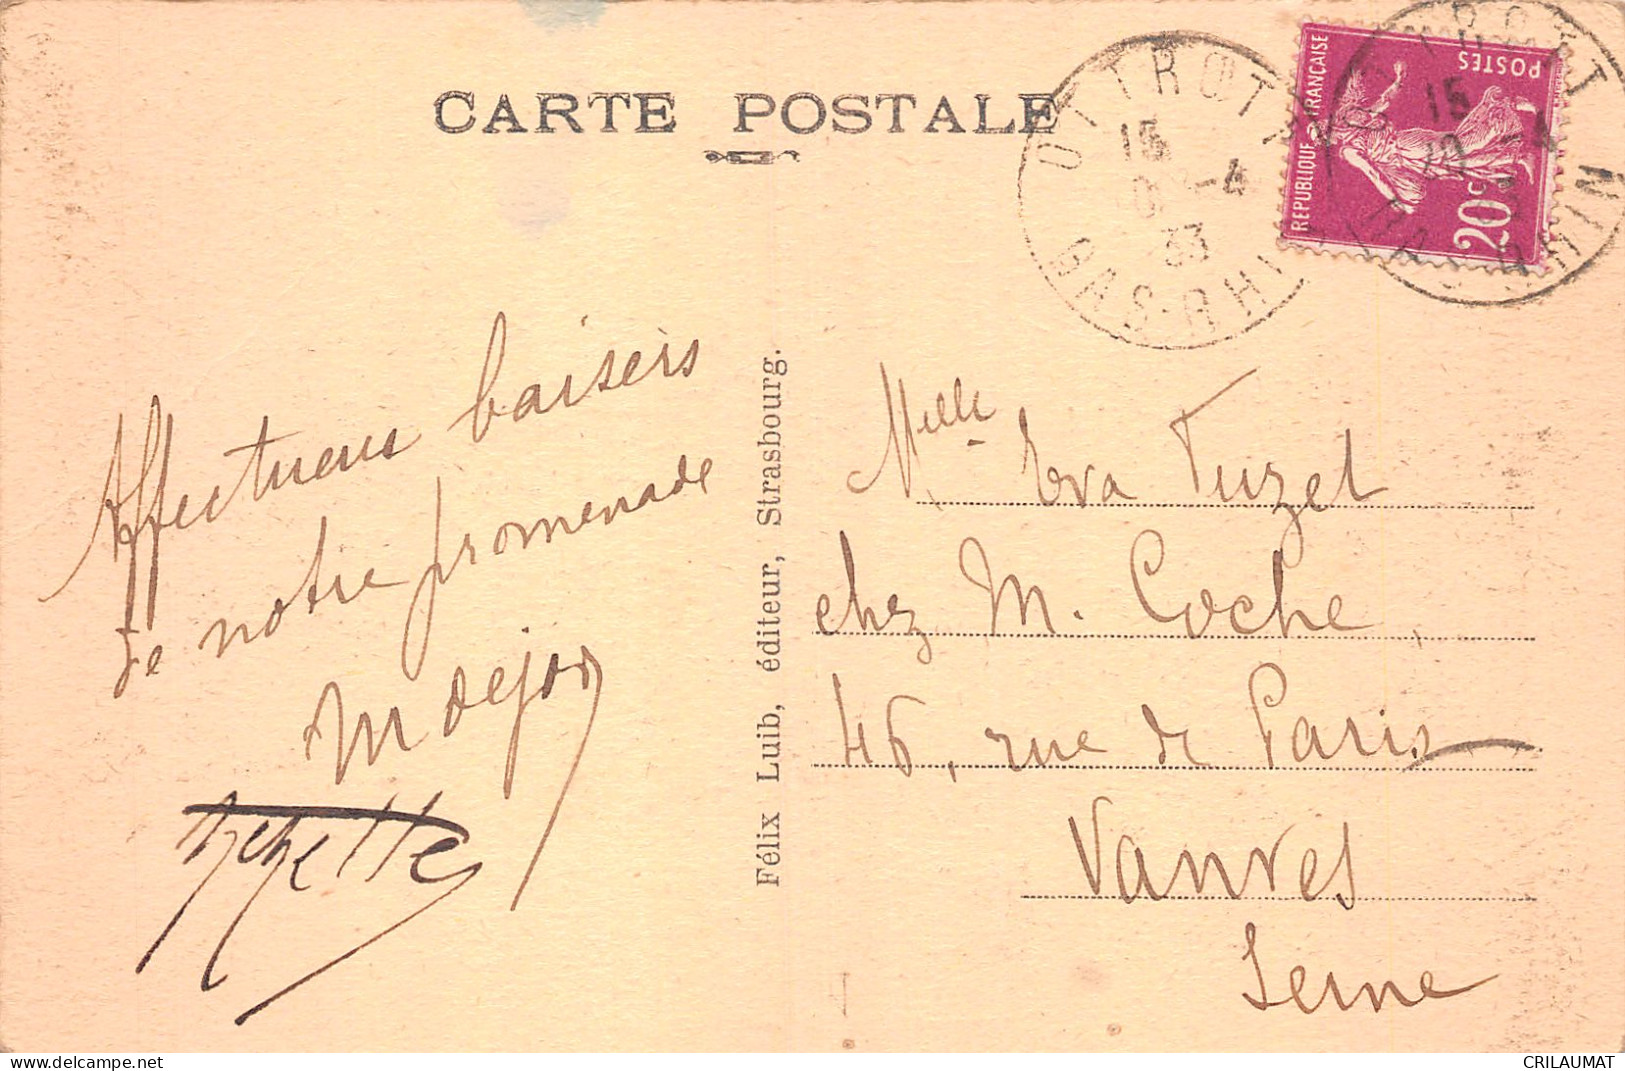 CARTE POSTALE
OTTROTT
15
-4
33
BAS-RHIN
REPUBLIQUE FRANÇAISE
POSTES
20c
OTTROTT
15
-4
BAS-RHIN
Affectueux baisers
de notre promenade
Félix Luib, éditeur, Strasbourg.
Melle Eva Tuzet
chez M. Coche
46, rue de Paris
Vanves
Seine
delcampe.net
CRILAUMAT